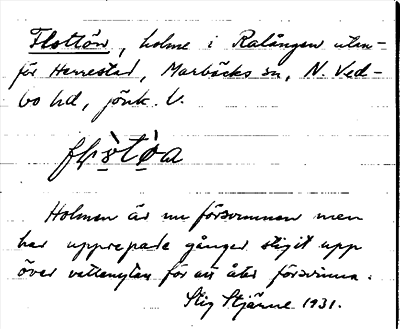 Flottön, holme i Ralången utan-
för Herrestad, Marbäcks sn, N. Ved-
bo hd, jönk. l.
flòtø̀a
Holmen är nu försvunnen men
har upprepade gånger stigit upp
över vattenytan för att åter försvinna.
Stig Stjärne 1931.